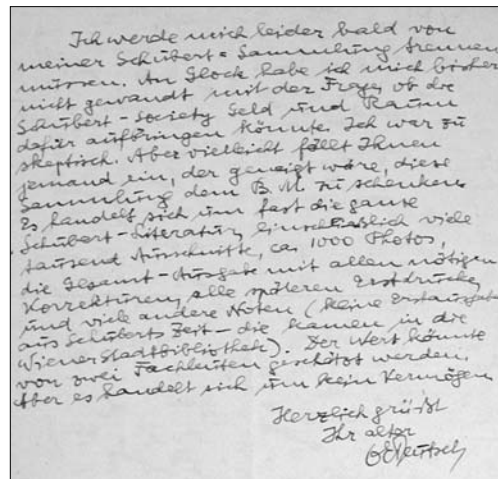 Ich werde mich leider bald von
meiner Schubert-Sammlung trennen
müssen. An Glock habe ich mich bisher
nicht gewandt mit der Frage, ob die
Schubert-Society Geld und Raum
dafür aufbringen könnte. Ich war zu
skeptisch. Aber vielleicht fällt Ihnen
jemand ein, der geneigt wäre, diese
Sammlung dem B. M. zu schenken.
Es handelt sich um fast die ganze
Schubert-Literatur, einschließlich viele
tausend Ausschnitte, ca. 1000 Photos,
die Gesamt-Ausgabe mit allen nötigen
Korrekturen, alle späteren Erstdrucke,
und viele andere Noten (keine Erstausgabe
aus Schuberts Zeit – die kamen in die
Wiener Stadtbibliothek). Der Wert könnte
von zwei Fachleuten geschätzt werden.
Aber es handelt sich um kein Vermögen.
Herzlich grüßt
Ihr alter
OEDeutsch